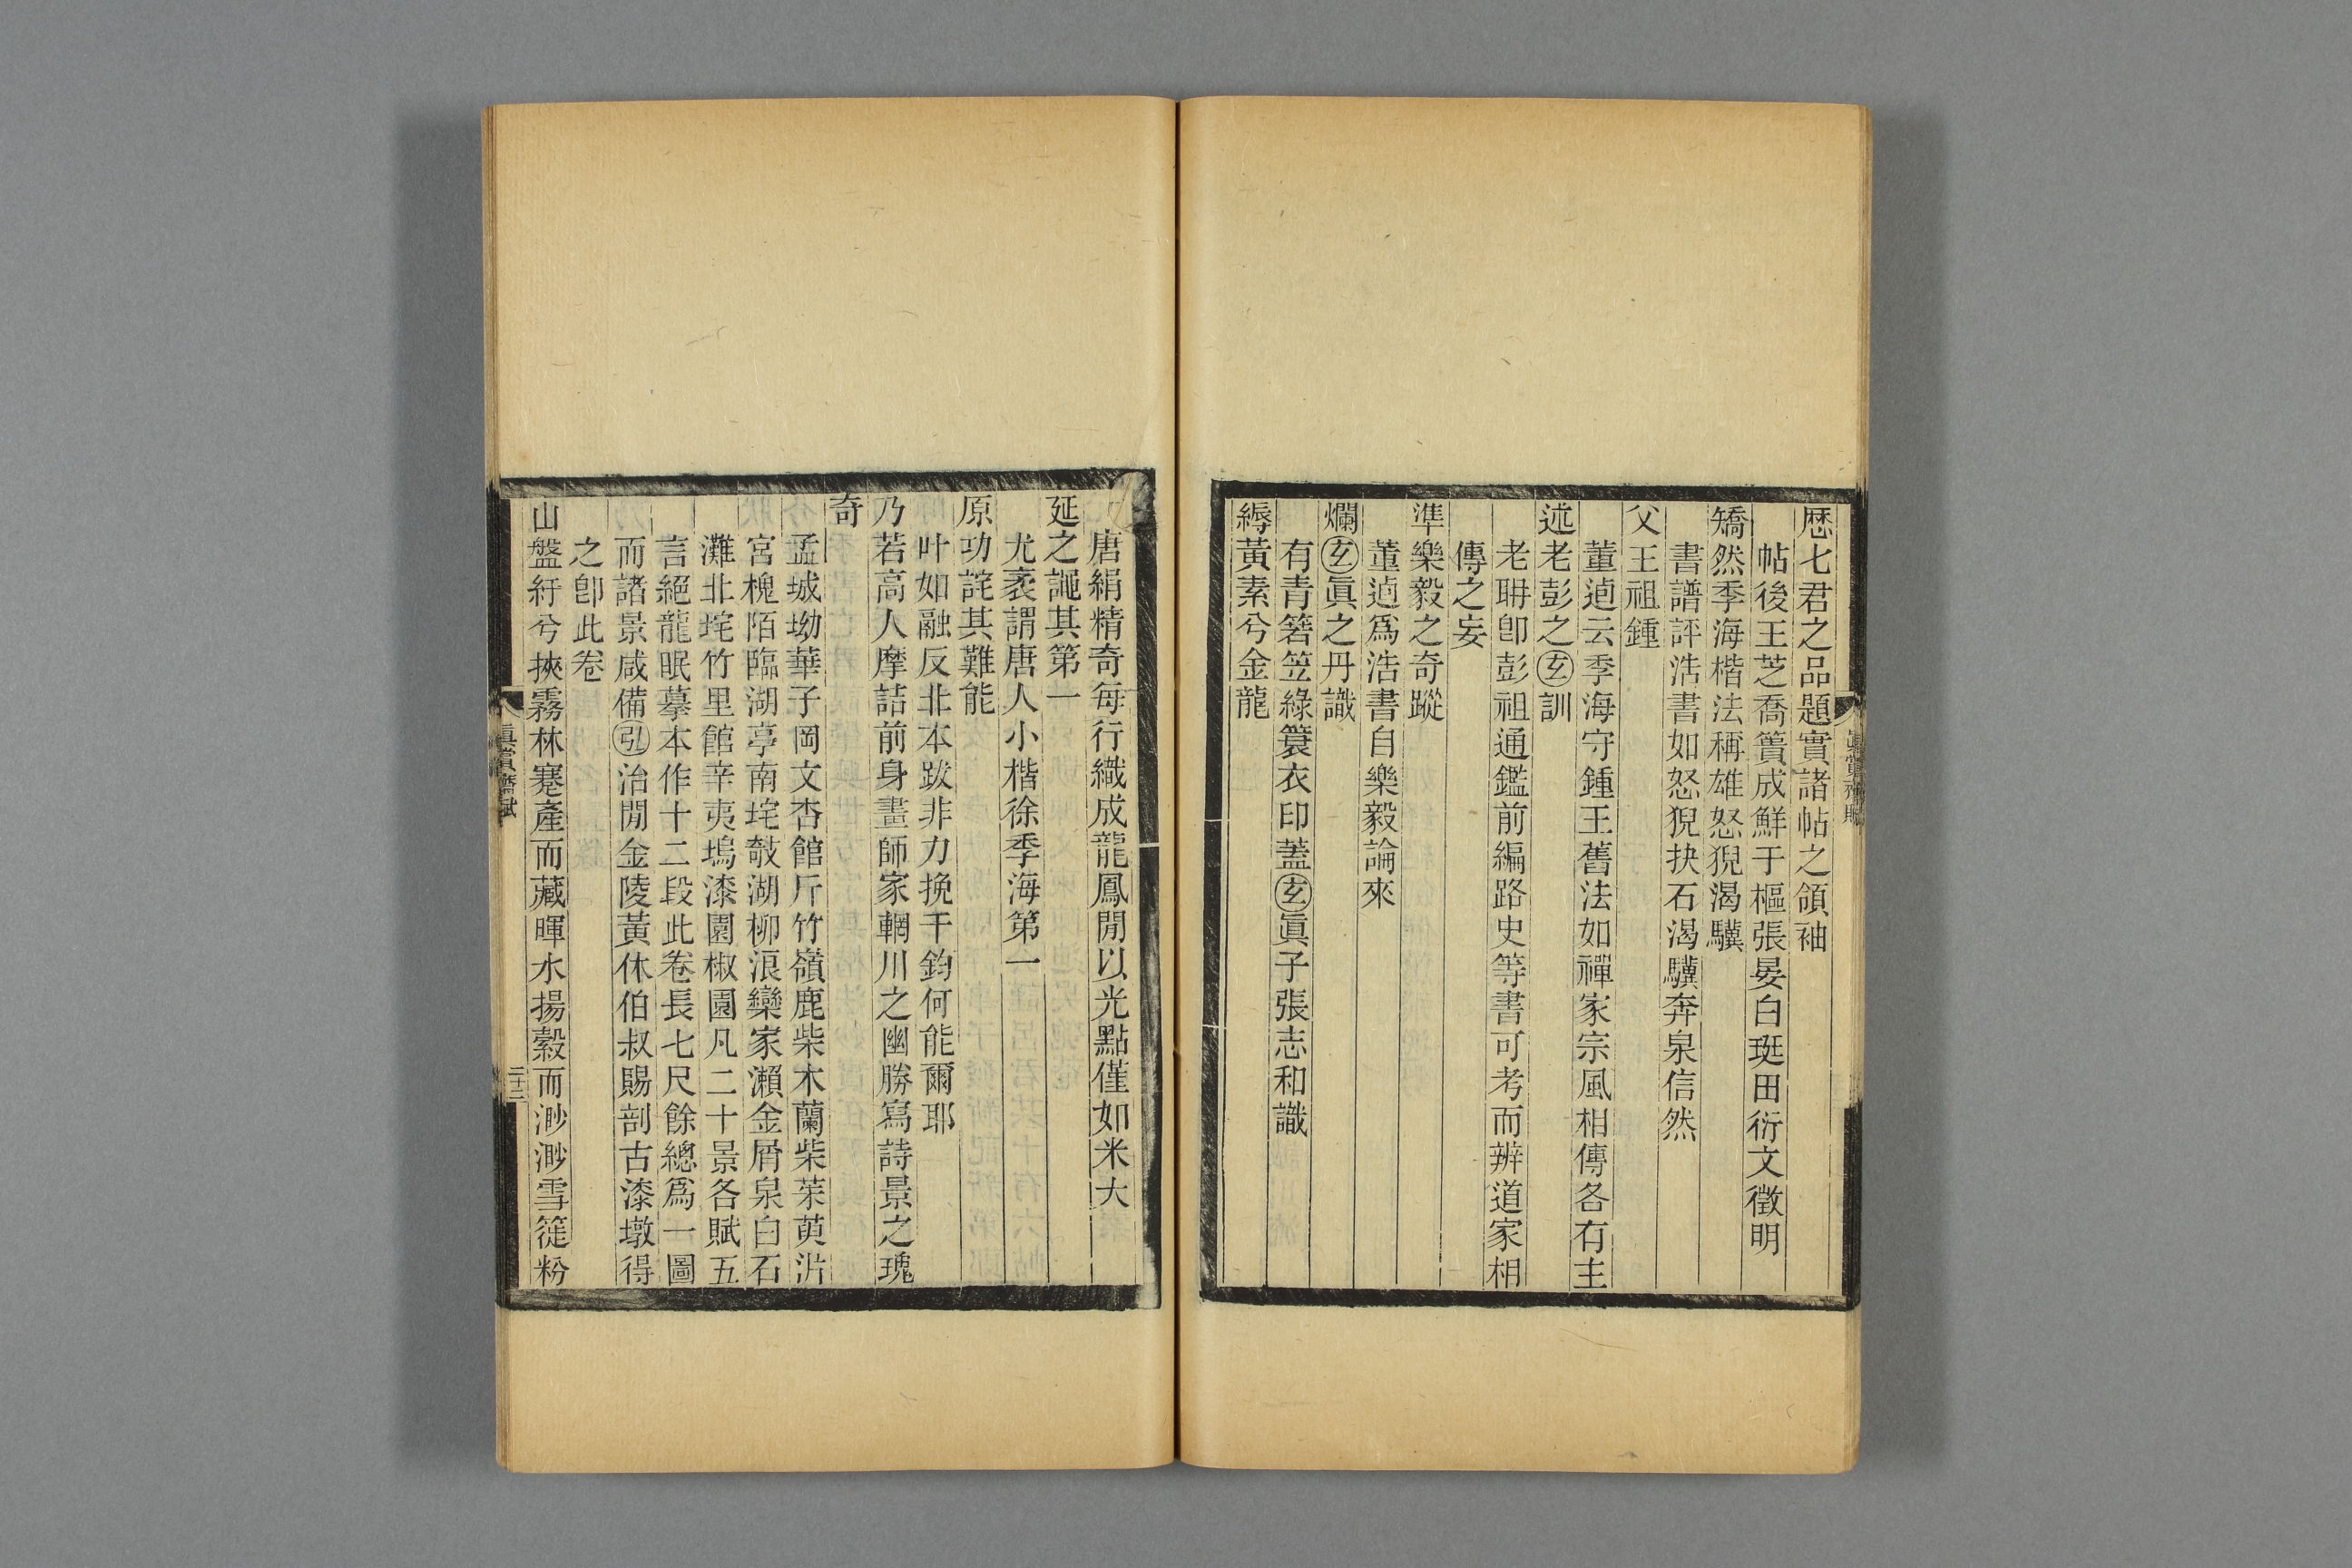 歷七君之品題實諸帖之領袖
帖後王芝喬簣成鮮于樞張晏白珽田衍文徵明
矯然季海楷法稱雄怒猊渴驥
書譜評浩書如怒猊抉石渴驥奔泉信然
父王祖鍾
董逌云季海守鍾王舊法如禪家宗風相傳各有主
述老彭之玄訓
老聃卽彭祖通鑑前編路史等書可考而辨道家相
傳之妄
準樂毅之奇蹤
董逌爲浩書自樂毅論來
爛玄眞之丹識
有青箬笠綠簑衣印蓋玄眞子張志和識
縟黃素兮金龍
眞賞齋賦
唐絹精奇每行織成龍鳳閒以光點僅如米大
延之謳其第一
尤袤謂唐人小楷徐季海第一
原功詫其難能
叶如融反北本跋非力挽千鈞何能爾耶
乃若高人摩詰前身畫師家輞川之幽勝寫詩景之瓌
奇
孟城坳華子岡文杏館斤竹嶺鹿柴木蘭柴茱萸沜
宮槐陌臨湖亭南垞敧湖柳浪欒家瀨金屑泉白石
灘北垞竹里館辛夷塢漆園椒園凡二十景各賦五
言絕龍眠摹本作十二段此卷長七尺餘總爲一圖
而諸景咸備弘治閒金陵黃休伯叔賜剖古漆墩得
之卽此卷
山盤紆兮挾霧林蹇產而藏暉水揚縠而渺渺雪篵粉
眞賞齋賦
二十三